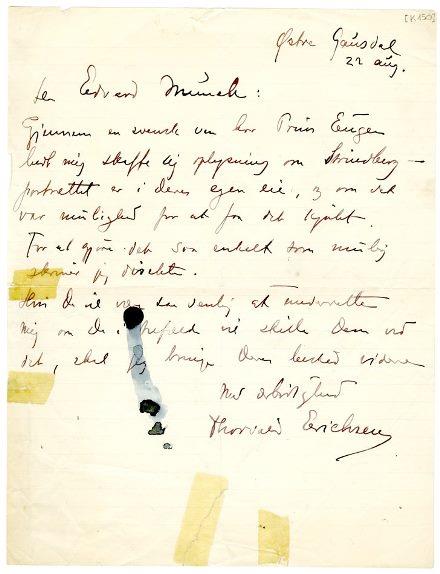 [K 150]
Østre Gausdal
22 aug.
Herr Edvard Munch:
Gjennem en svensk ven har Prins Eugen
bedt mig skaffe sig oplysning om Strindberg-
portrættet er i deres egen eie, og om det
var mulighed for at faa det kjøbt.
For at gjøre det saa enkelt som mulig
skriver jeg direkte.
Hvis De vil være saa venlig at underrette
mig om De i tilfælde vil skille Dem ved
det, skal jeg bringe Deres besked videre
Med
Thorvald Erichsen